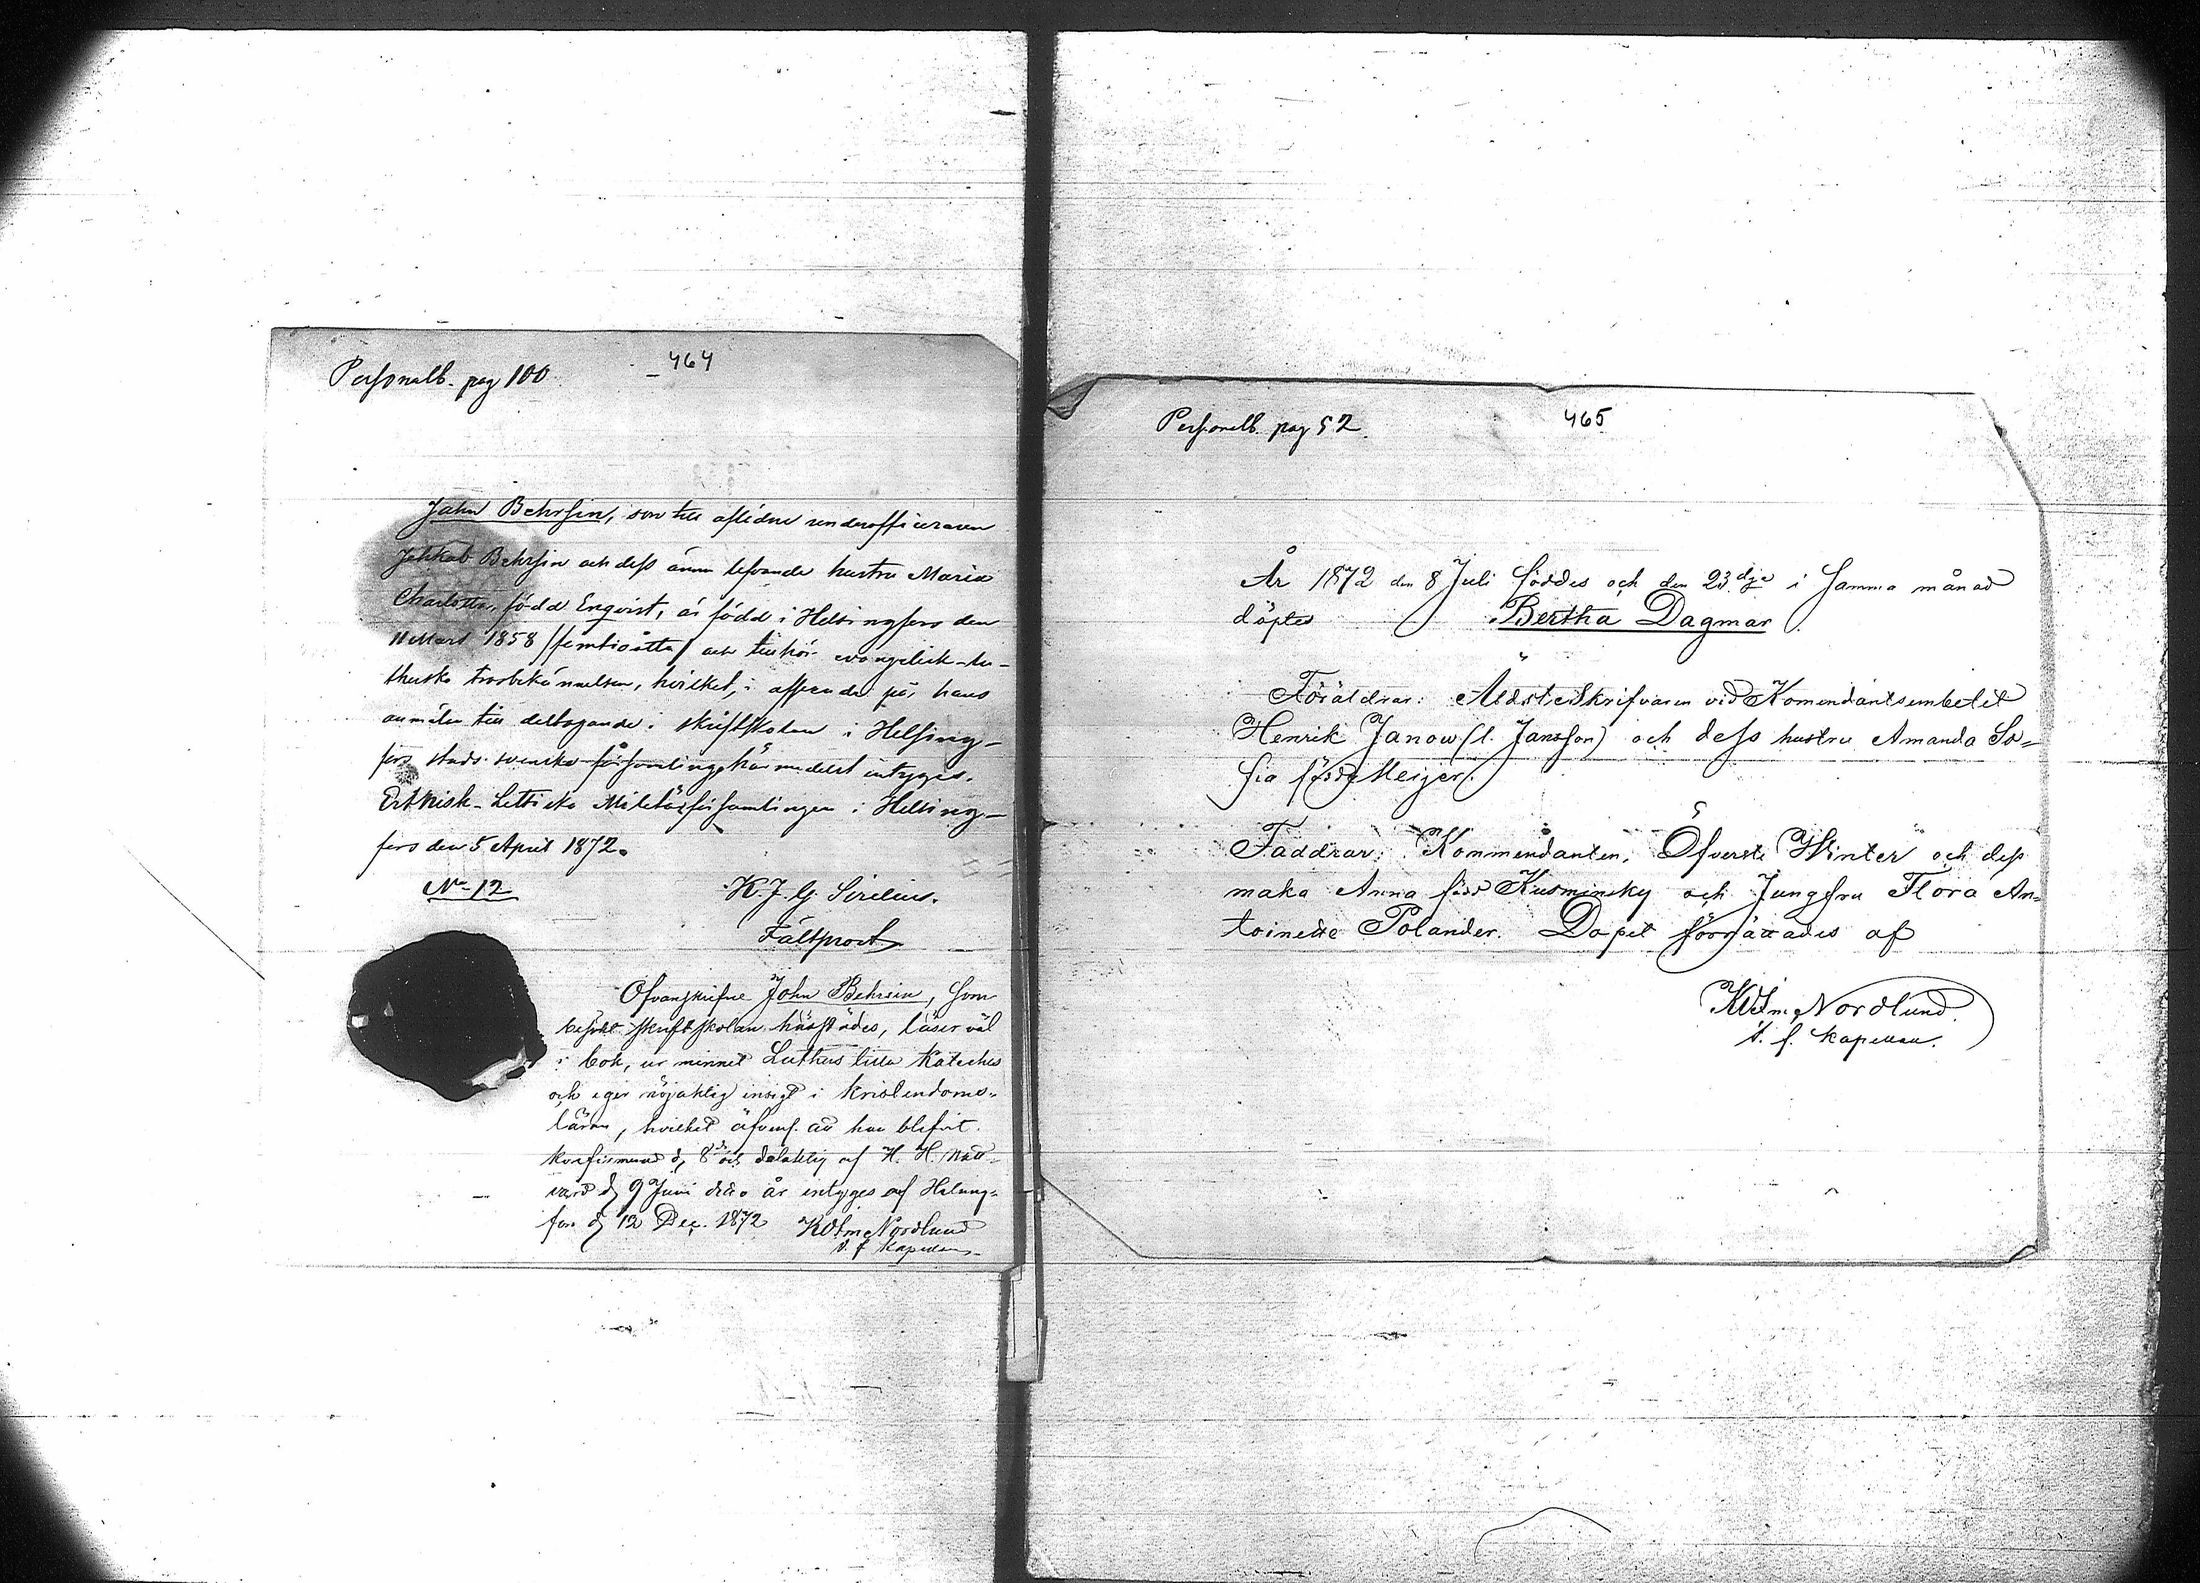 Personalb. pag 100
464
John Behrsin, son till aflidne underofficeraren
Jahkab Behrsin och dess ännu lefvande hustru Maria
Charlotta, född Enqvist, är född i Helsingfors den
11 Mars 1858 (femtioåtta) och tillhör evangelisk-lu-
therska trosbekännelsen, hvilket, i afseende på, hans
anmälan till deltagande i skriftskolan i Helsing-
fors stads svenska församling härmedelst intygas.
Estnisk-Lettiska Militärförsamlingen i Helsing-
fors den 5 April 1872.
No 12
K. J. G. Sirelius.
Fältprost
Ofvanskrifne John Behrsin, som
besökt skriftskolan härstädes, läser väl
i bok, ur minnet Luthers lilla Kateches
och eger nöjaktig insigt i kristendoms-
läran, hvilket äfvens. att han blifvit
konfirmerad d. 8de och delaktig af H. H. Natt-
vard d. 9 Juni detta år intygas af Helsing-
fors d. 12 Dec. 1872 KWilm Nordlund
v. f. kapellan
Personalb. pag 52.
465
År 1872 den 8 Juli föddes och den 23dje i samma månad
döptes Bertha Dagmar.
Föräldrar: Äldste Skrifvaren vid Komendantsembetet
Henrik Janow (l. Jansson) och dess hustru Amanda So-
fia född Meijer.
Faddrar: Kommendanten, Öfverste Winter och dess
maka Anna född Kusminsky och Jungfru Flora An-
toinette Polander. Dopet förrättades af
KWilm Nordlund.
v. f. kapellan.